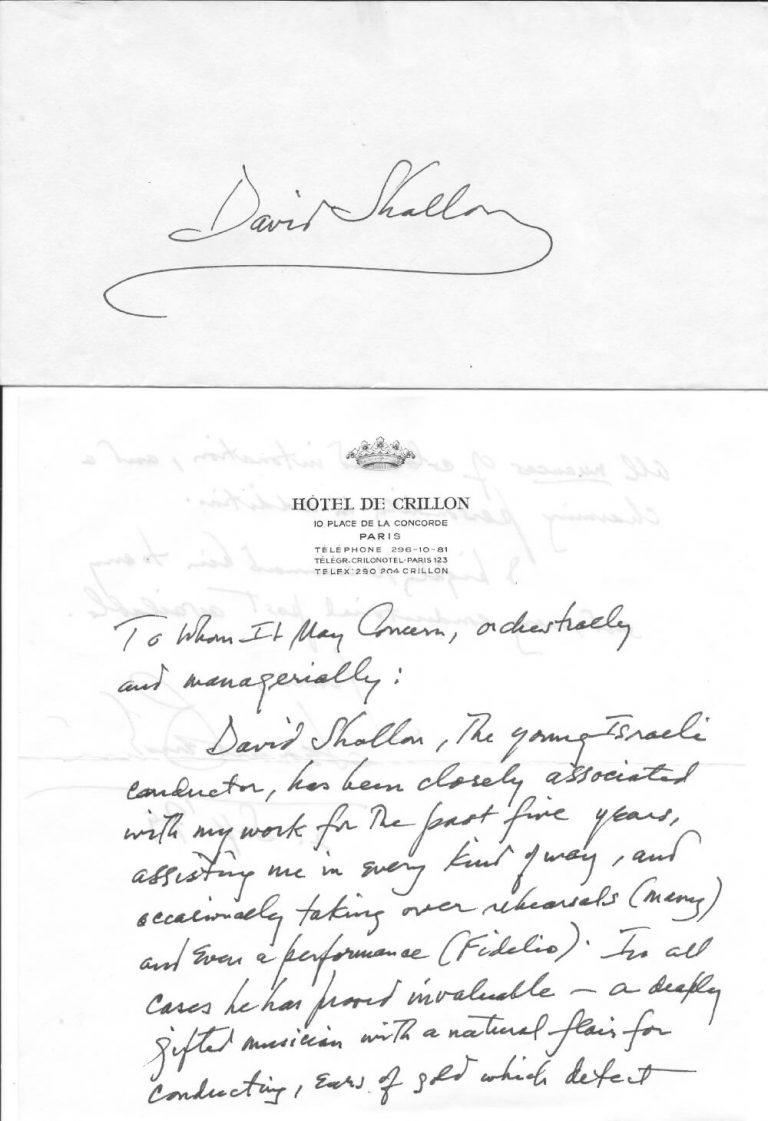 David Shallon
HÔTEL DE CRILLON
10 PLACE DE LA CONCORDE
PARIS
TÉLÉPHONE 296-10-81
TÉLÉGR. CRILONOTEL-PARIS 123
TELEX: 290 204 CRILLON
To Whom It May Concern, orchestrally
and managerially:
David Shallon, the young Israeli
conductor, has been closely associated
with my work for the past five years,
assisting me in every kind of way, and
occasionally taking over rehearsals (many)
and even a performance (Fidelio). In all
cases he has proved invaluable — a deeply
gifted musician with a natural flair for
conducting, ears of gold which detect